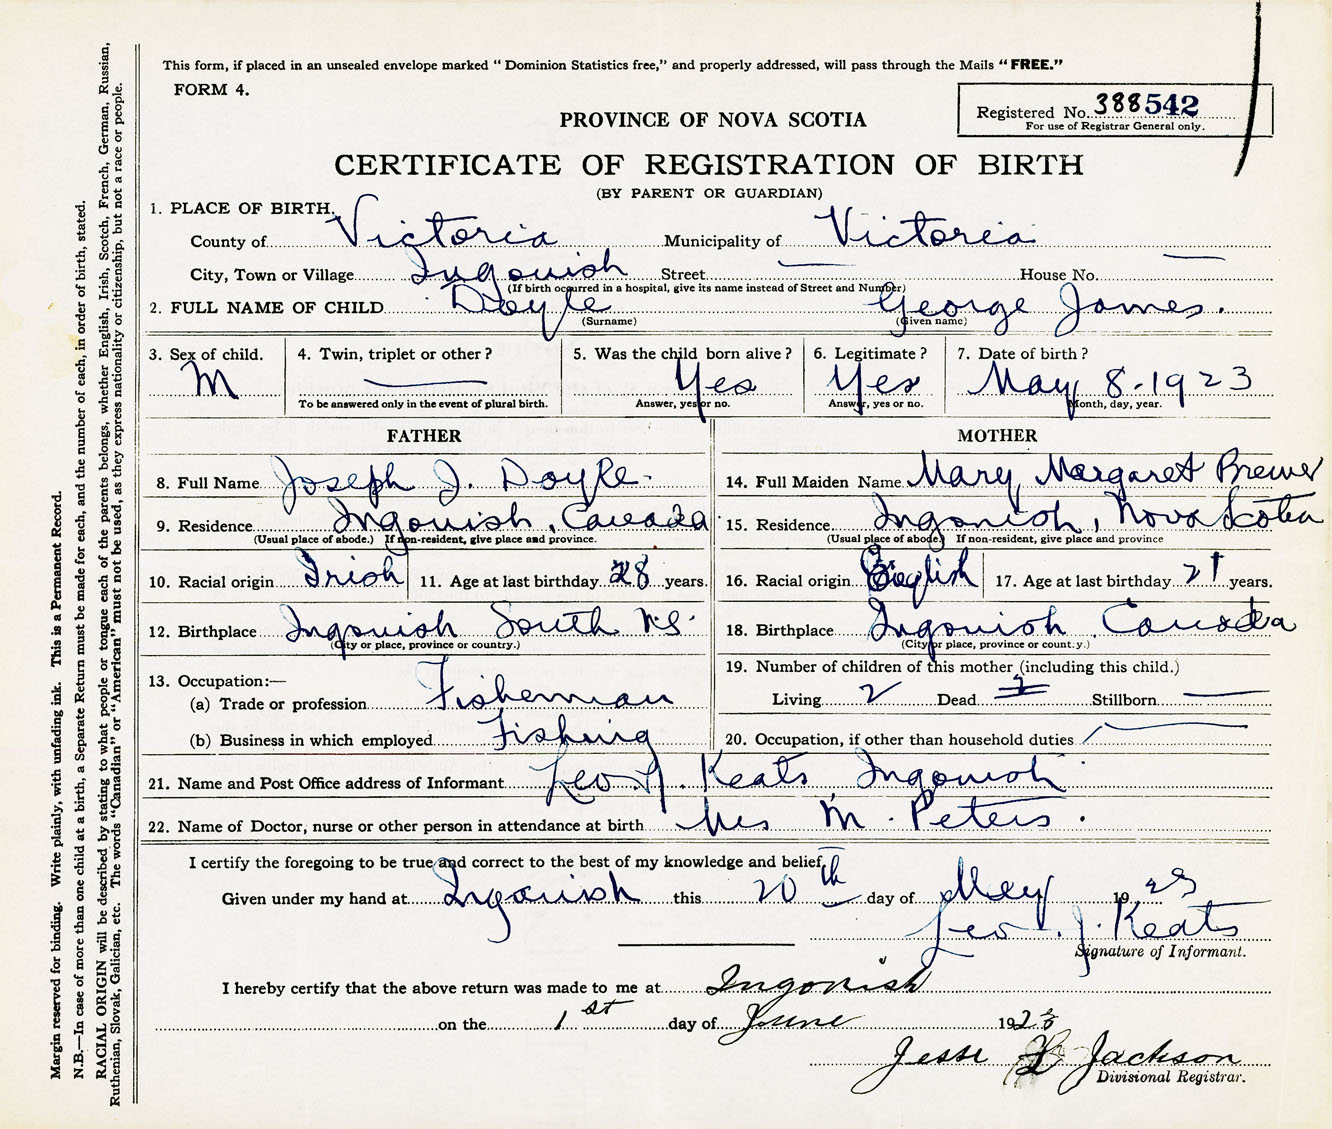 This form, if placed in an unsealed envelope marked “Dominion Statistics free,” and properly addressed, will pass through the Mails “FREE.”
FORM 4.
Registered No. 388542
For use of Registrar General only.
PROVINCE OF NOVA SCOTIA
CERTIFICATE OF REGISTRATION OF BIRTH
(BY PARENT OR GUARDIAN)
1. PLACE OF BIRTH.
County of Victoria Municipality of Victoria
City, Town or Village Ingonish Street — House No. —
(If birth occurred in a hospital, give its name instead of Street and Number)
2. FULL NAME OF CHILD Doyle George James.
(Surname) (Given name)
3. Sex of child. M
4. Twin, triplet or other? —
To be answered only in the event of plural birth.
5. Was the child born alive? Yes
Answer, yes or no.
6. Legitimate? Yes
Answer, yes or no.
7. Date of birth? May 8-1923
Month, day, year.
FATHER
8. Full Name Joseph J. Doyle
9. Residence Ingonish, Canada
(Usual place of abode.) If non-resident, give place and province.
10. Racial origin Irish 11. Age at last birthday 28 years.
12. Birthplace Ingonish South N.S.
(City or place, province or country.)
13. Occupation:—
(a) Trade or profession Fisherman
(b) Business in which employed Fishing
MOTHER
14. Full Maiden Name Mary Margaret Brewer
15. Residence Ingonish, Nova Scotia
(Usual place of abode.) If non-resident, give place and province
16. Racial origin English 17. Age at last birthday 21 years.
18. Birthplace Ingonish Canada
(City or place, province or country.)
19. Number of children of this mother (including this child.)
Living 2 Dead Stillborn —
20. Occupation, if other than household duties —
21. Name and Post Office address of Informant Leo J. Keats Ingonish
22. Name of Doctor, nurse or other person in attendance at birth Mrs M. Peters.
I certify the foregoing to be true and correct to the best of my knowledge and belief,
Given under my hand at Ingonish this 20th day of May 1923
Leo J. Keats
Signature of Informant.
I hereby certify that the above return was made to me at Ingonish
on the 1st day of June 1923
Jesse Jackson
Divisional Registrar.
Margin reserved for binding. Write plainly, with unfading ink. This is a Permanent Record.
N.B.—In case of more than one child at a birth, a Separate Return must be made for each, and the number of each, in order of birth, stated.
RACIAL ORIGIN will be described by stating to what people or tongue each of the parents belongs, whether English, Irish, Scotch, French, German, Russian,
Ruthenian, Slovak, Galician, etc. The words “Canadian” or “American” must not be used, as they express nationality or citizenship, but not a race or people.